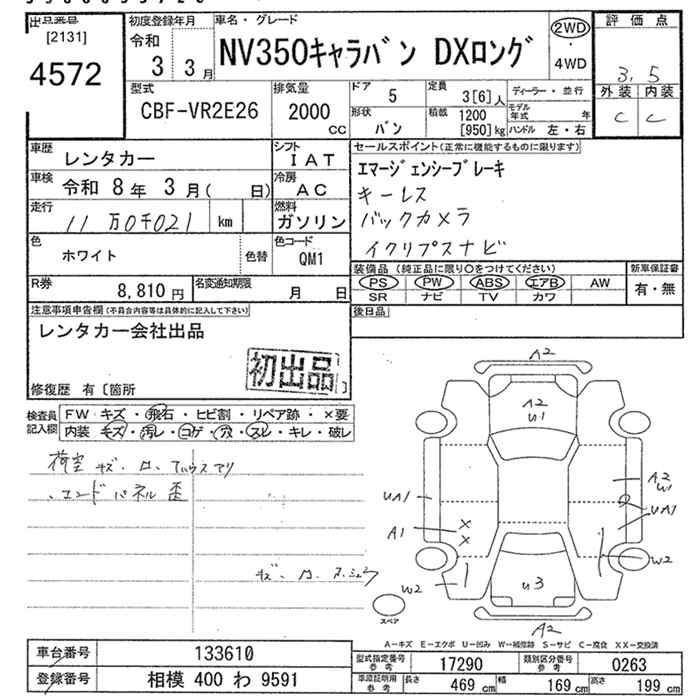 出品番号
[2131]
4572
初度登録年月
令和
3 3月
車名・グレード
NV350キャラバン DXロング
2WD
・
4WD
評価点
3.5
外装 内装
C C
型式
CBF-VR2E26
排気量
2000
CC
ドア
5
定員
3[6]人
ディーラー・並行
形状
バン
積載
1200
[950]kg
モデル
年式 年
ハンドル 左・右
車歴
レンタカー
シフト
IAT
車検
令和 8年 3月( 日)
冷房
AC
走行
11万0千021 km
燃料
ガソリン
色
ホワイト
色替
色コード
QM1
R券
8,810円
名変通知期限
月 日
セールスポイント(正常に機能するものに限ります)
エマージェンシーブレーキ
キーレス
バックカメラ
イクリプスナビ
装備品 (純正品に限り○をつけてください)
PS PW ABS エアB AW
SR ナビ TV カワ
新車保証書
有・無
後日品
注意事項申告欄(不具合内容等は具体的に記入して下さい)
レンタカー会社出品
初出品
修復歴 有〔箇所
検査員
記入欄
FW キズ・飛石・ヒビ割・リペア跡・×要
内装 キズ・汚レ・コゲ・穴・スレ・キレ・破レ
荷室 キズ、ロ、
エンドパネル歪
A2
A2
U1
UA1
A1
×
×
W2
A2
W1
UA1
W2
U3
A2
スペア
A－キズ E－エクボ U－凹み W－補修跡 S－サビ C－腐食 XX－交換済
車台番号
133610
登録番号
相模 400 わ 9591
型式指定番号
参考
17290
類別区分番号
参考
0263
車庫証明用
参考
長さ 469cm
幅 169cm
高さ 199cm